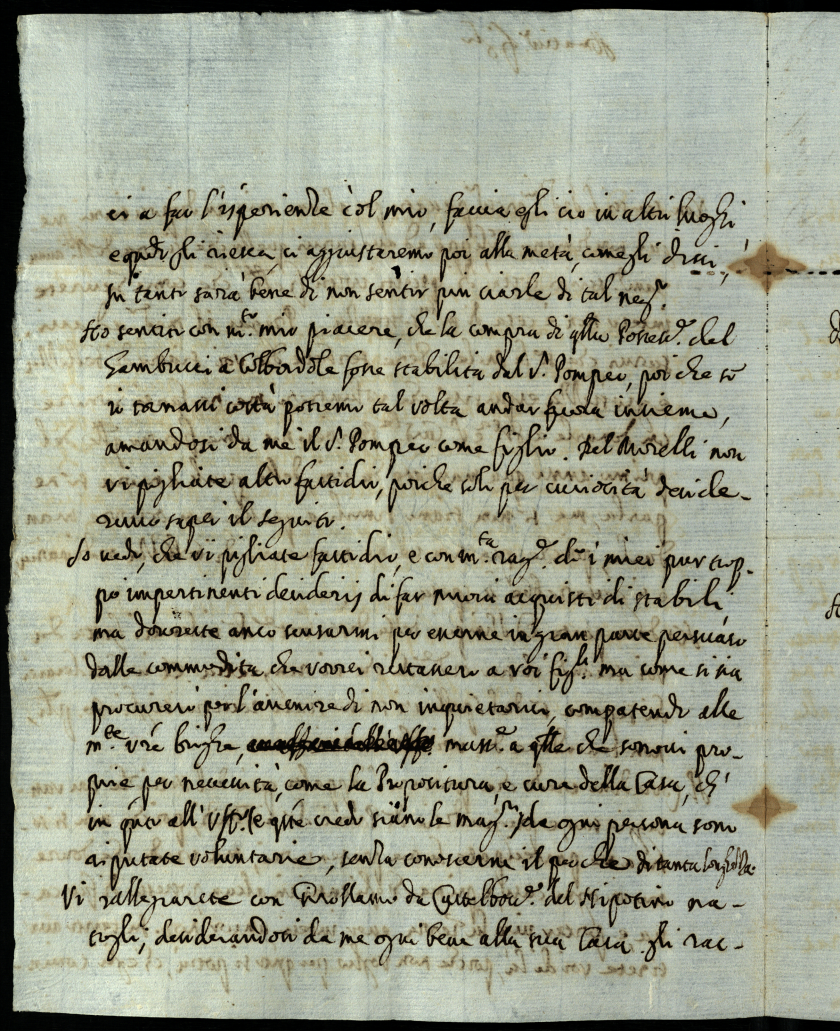 ci a far l'isperienze col mio, faccia egli cio in altri luoghi
e qñdo gli riesca, ci aggiustaremo poi alla metà, comegli dissi,
in tanto sarà bene di non sentir piu ciarle di tal neg.º
Ho sentito con m.to mio piacere, che la compra di qllo Possess.e del
Zambucci à Colbordole fosse stabilita dal S. Pompeo, poi che se
io tornassi costà potremo tal volta andar fuora insieme,
amandosi da me il S. Pompeo come figlio. Del Morelli non
vi pigliate altro fastidio, poiche solo per curiosità deside-
ravo saper il seguito.
Io vedo, che vi pigliate fastidio, e con m.ta rag.e di i miei pur trop-
po impertinenti desiderij di far nuovi acquisti di stabili
ma dovreste anco scusarmi per esserne in gran parte persuaso
dalle commodità, che vorrei restassero a voi figli ma come si sia
procurerò per l'avenire di non inquietarvi, compatendo alle
m.te vře brighe, mass.e a qlle che sonovi pro-
prie per necessità, come la Propositura, e cura della Casa, ch'
in qto all' Uff.º (e qste credo siano le mag.ri) da ogni persona sono
riputate voluntarie, senza conoscerne il perche di tanta longhezza.
Vi rallegrarete con Girollamo da Castelbou.e del Nipotino na-
togli, desiderandosi da me ogni bene alla sua Casa. gli rac-